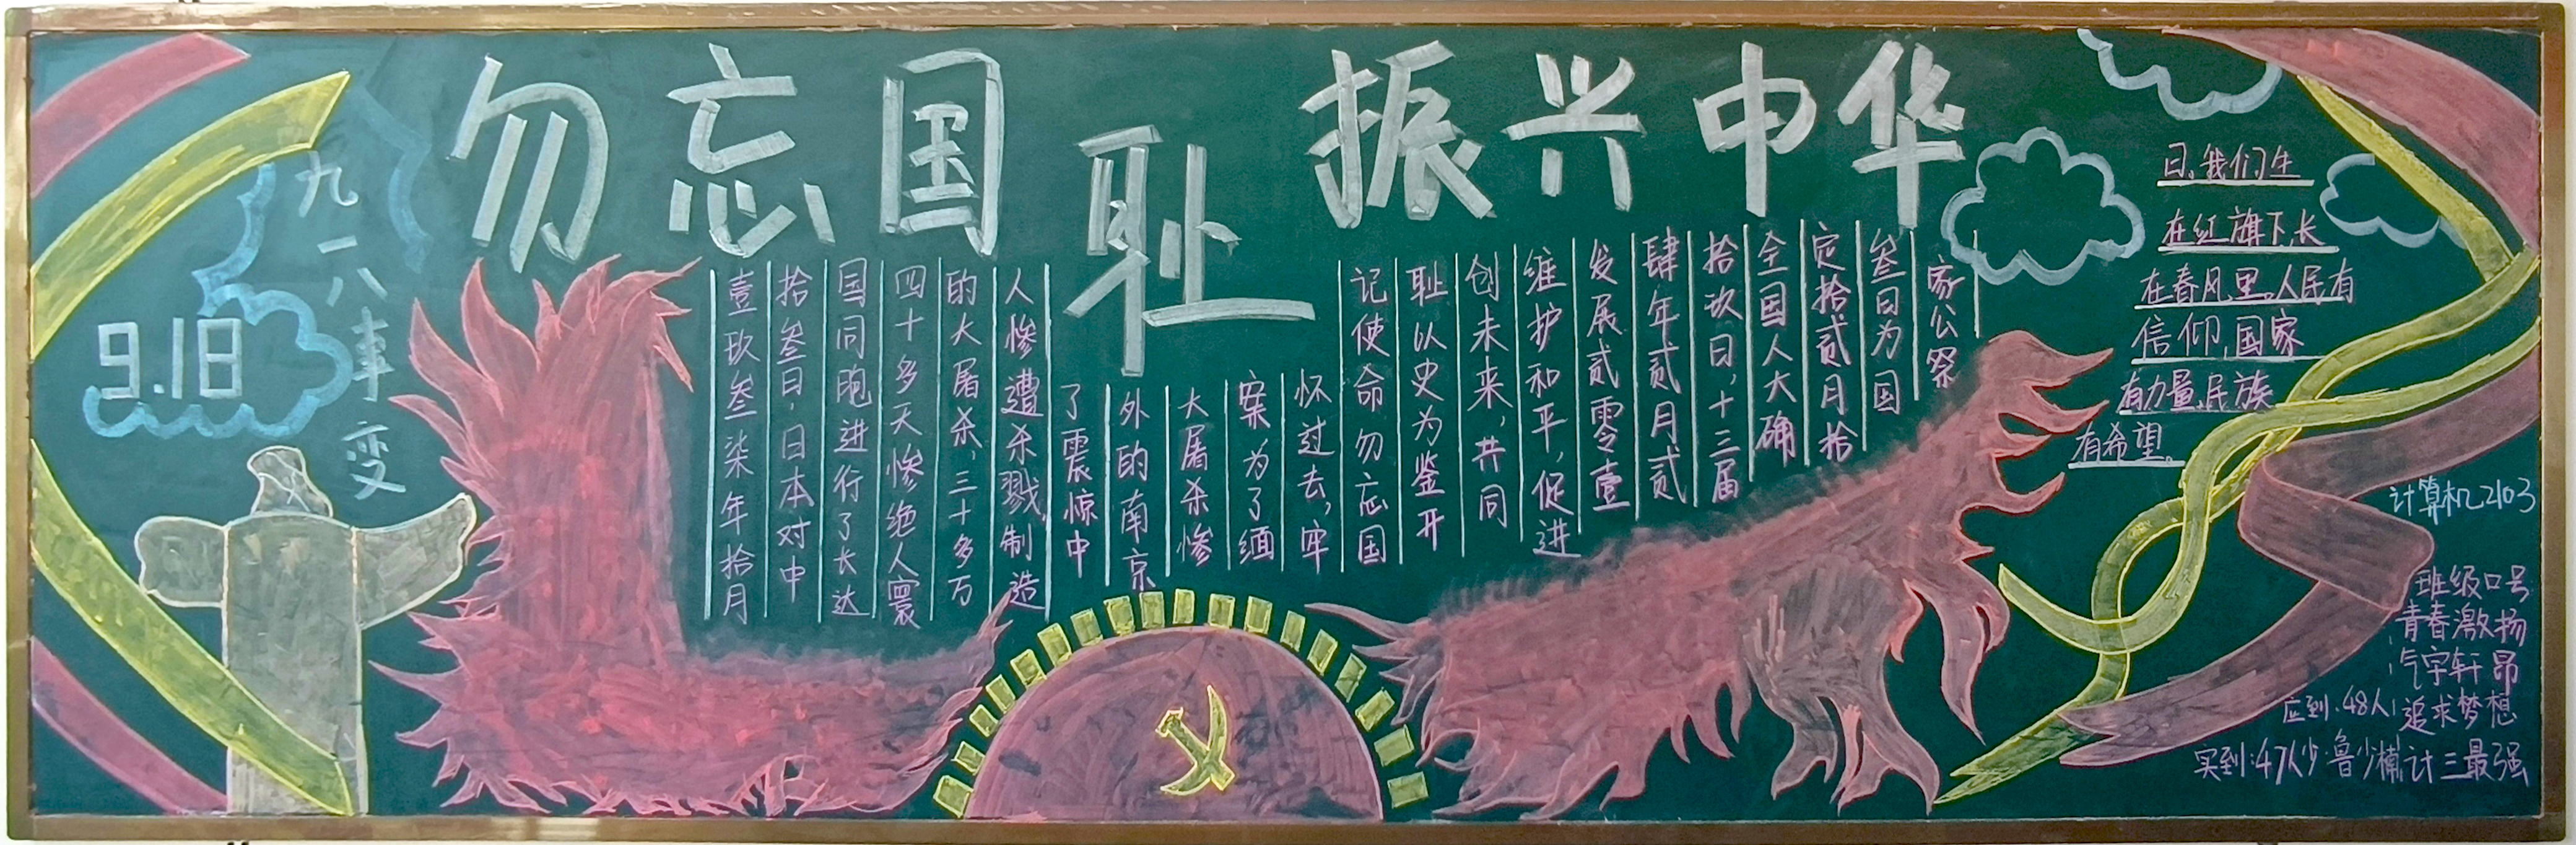 勿忘国耻振兴中华
九一八事变
9.18
壹玖叁柒年拾月
拾叁日，日本对中
国同胞进行了长达
四十多天惨绝人寰
的大屠杀，三十多万
人惨遭杀戮，制造
了震惊中
外的南京
大屠杀惨
案为了缅
怀过去，牢
记使命勿忘国
耻以史为鉴开
创未来，共同
维护和平，促进
发展贰零壹
肆年贰月贰
拾玖日，十三届
全国人大确
定拾贰月拾
叁日为国
家公祭
日，我们生
在红旗下，长
在春风里。人民有
信仰，国家
有力量，民族
有希望。
计算机2103
班级口号
青春激扬
气宇轩昂
应到：48人
追求梦想
实到：47人少：鲁少楠
计三最强